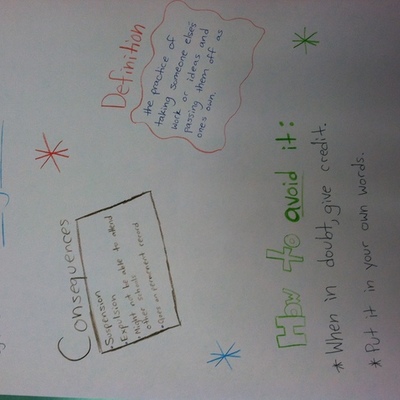 Definition
the practice of
taking someone else's
work or ideas and
passing them off as
ones own.
Consequences
• Suspension
• Expulsion
• Might not be able to attend
other schools
• Goes on permanent record
How to avoid it:
* When in doubt, give credit.
* Put it in your own words.